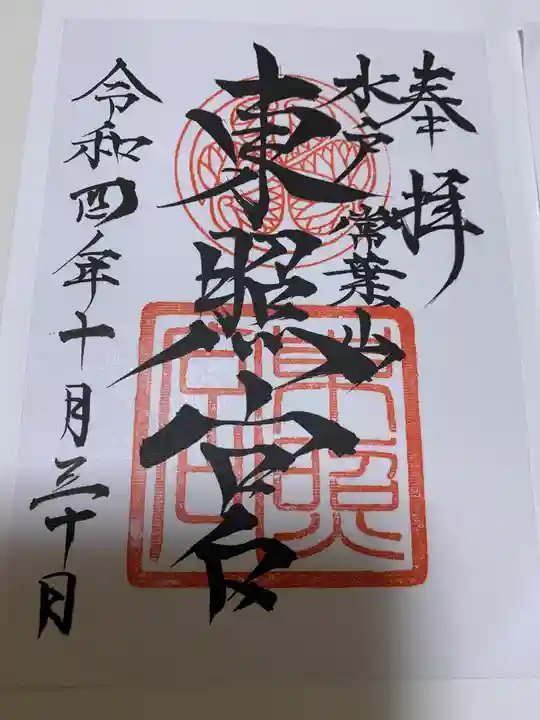 奉拝
水戸常葉山
東照宮
東照宮印
令和四年十月三十日